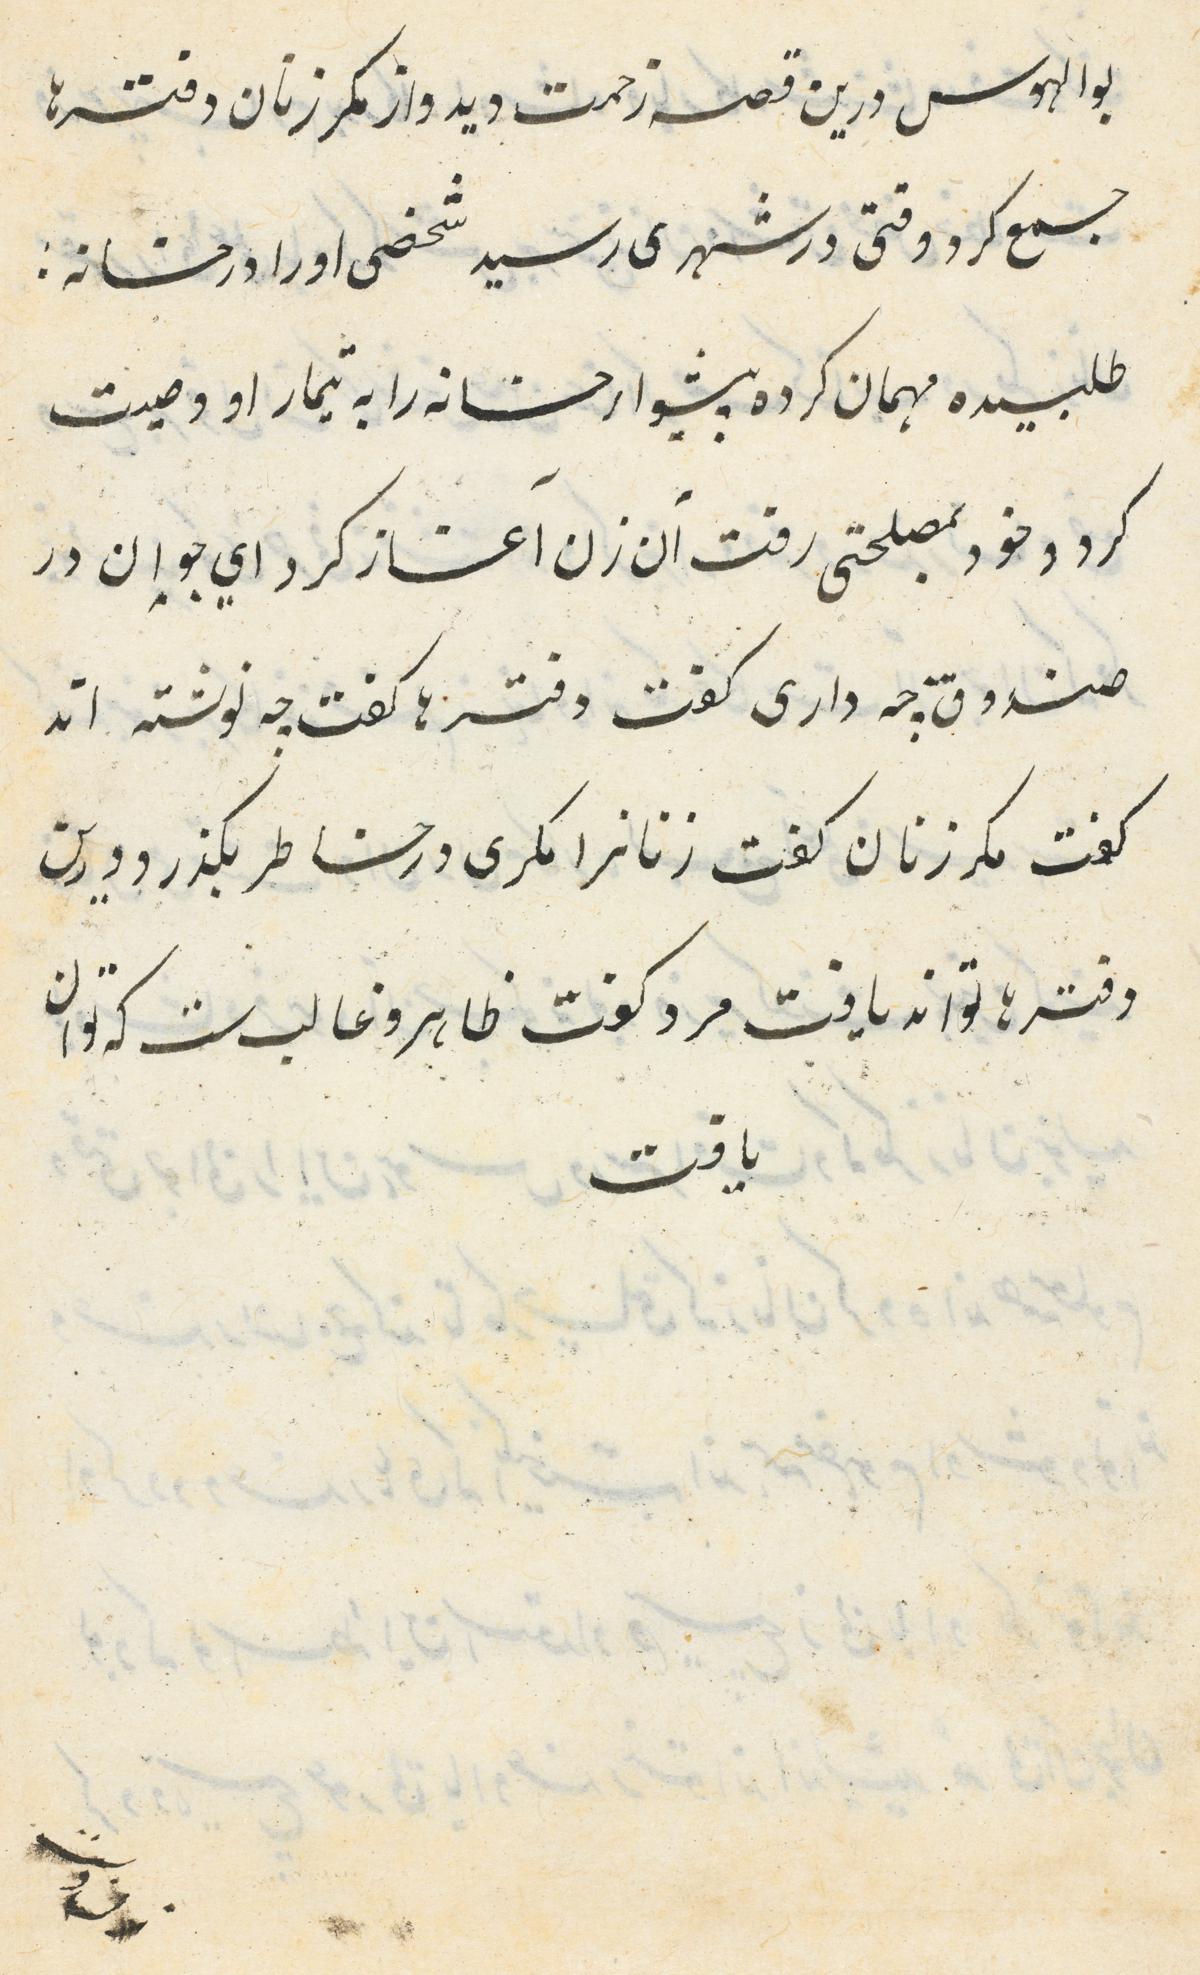 بوالهوس درین قصه زحمت دید و از مکر زنان دفترها
جمع کرد وقتی در شهری رسید شخصی او را در خانه
طلبیده مهمان کرده پیشوار خانه را به تیمار او وصیت
کرد و خود بمصلحتی رفت آن زن آغاز کرد ای جوان در
صندوق چه داری کفت دفترها کفت چه نوشته اند
کفت مکر زنان کفت زنانرا مکری در خاطر بکذرد و درین
دفترها تواند یافت مرد کفت ظاهر و غالب ست که توان
یافت